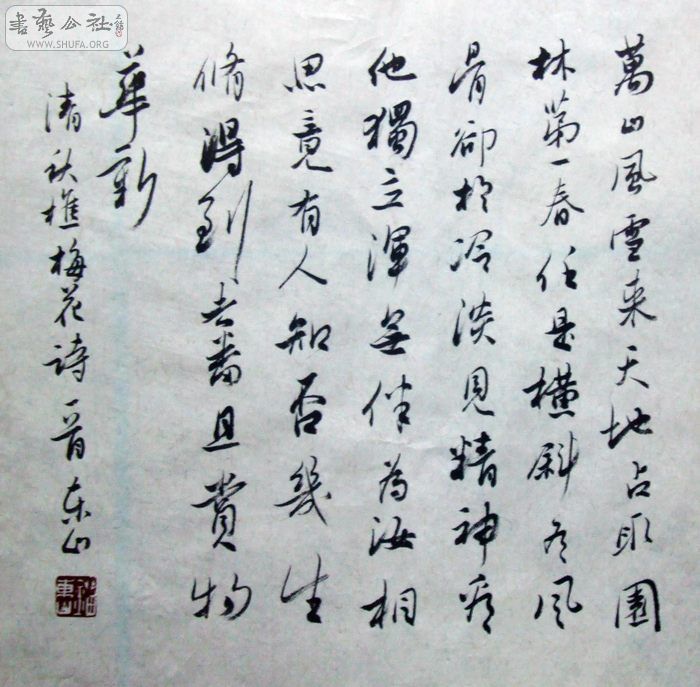 書藝公社
WWW.SHUFA.ORG
萬山風雪来天地占取園
林第一春任是橫斜風
骨卻於冷淡見精神看
他獨立渾無伴為汝相
思竟有人知否幾生
脩得到者番且賞物
華新
清秋樵梅花詩一首东山